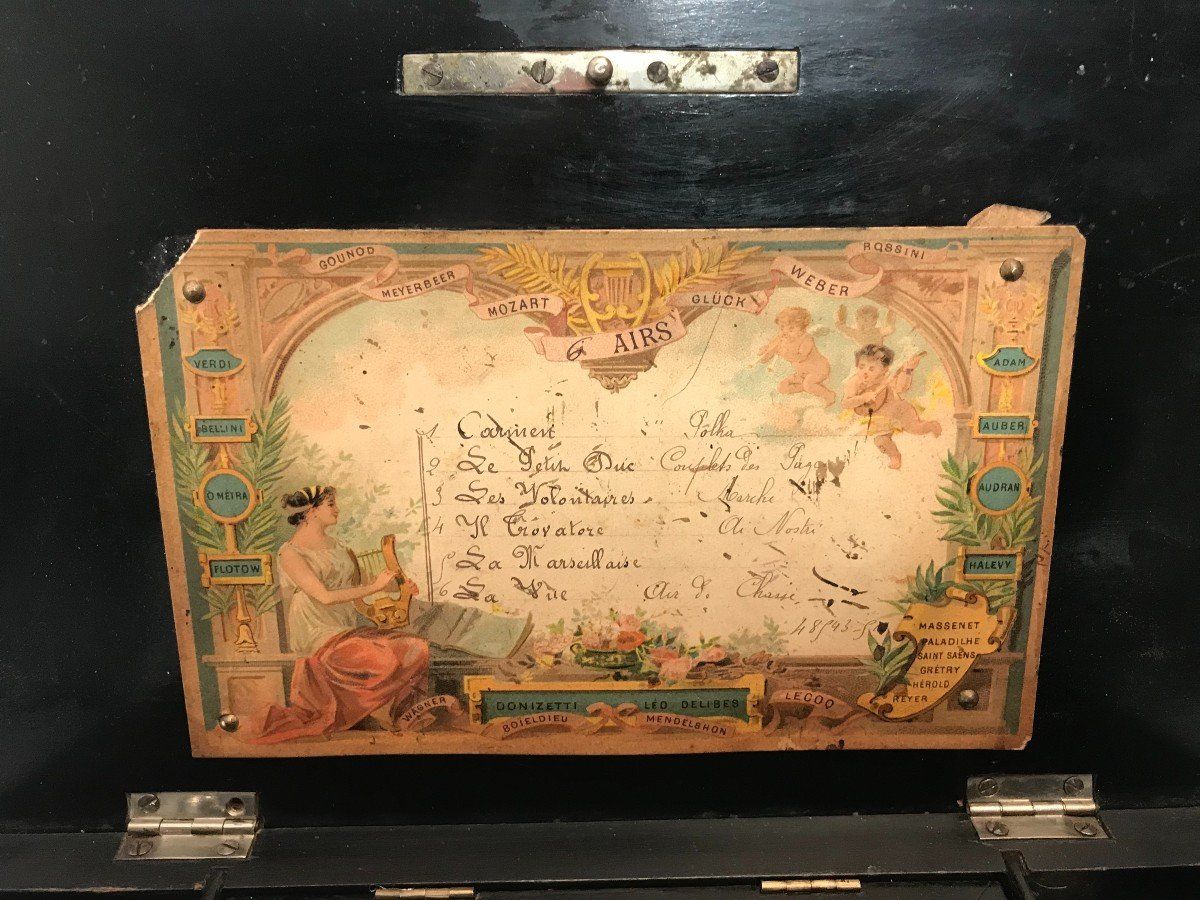 GOUNOD
MEYERBEER
MOZART
GLÜCK
WEBER
ROSSINI
6 AIRS
VERDI
BELLINI
O MÉTRA
FLOTOW
ADAM
AUBER
AUDRAN
HALEVY
1 Carmen " Polka
2 Le Petit Duc Couplets des
3 Les Volontaires Marche
4 Il Trovatore Ai Nostri
5 La Marseillaise
6 La Vie Air de Chasse
MASSENET
PALADILHE
SAINT SAËNS
GRÉTRY
HÉROLD
REYER
WAGNER
DONIZETTI LÉO DELIBES
LECOQ
BOÏELDIEU MENDELSHON